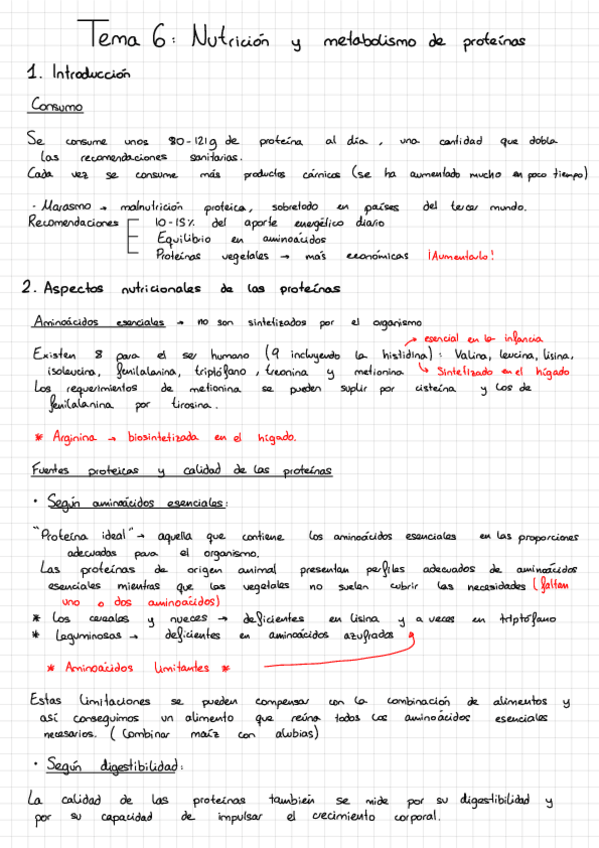 Tema 6: Nutrición y metabolismo de proteínas
1. Introducción
Consumo
Se consume unos 80-121g de proteína al día, una cantidad que dobla
las recomendaciones sanitarias.
Cada vez se consume más productos cárnicos (se ha aumentado mucho en poco tiempo)
· Marasmo → malnutrición proteica, sobretodo en países del tercer mundo.
Recomendaciones 10-15% del aporte energético diario
Equilibrio en aminoácidos
Proteínas vegetales → más económicas ¡Aumentarlo!
2. Aspectos nutricionales de las proteínas
Aminoácidos esenciales → no son sintetizados por el organismo
→ esencial en la infancia
Existen 8 para el ser humano (9 incluyendo la histidina): Valina, leucina, lisina,
isoleucina, fenilalanina, triptófano, treonina y metionina ↳ Sintetizado en el hígado
Los requerimientos de metionina se pueden suplir por cisteína y los de
fenilalanina por tirosina.
* Arginina → biosintetizada en el hígado.
Fuentes proteicas y calidad de las proteínas
· Según aminoácidos esenciales:
"Proteína ideal" → aquella que contiene los aminoácidos esenciales en las proporciones
adecuadas para el organismo.
Las proteínas de origen animal presentan perfiles adecuados de aminoácidos
esenciales mientras que las vegetales no suelen cubrir las necesidades (faltan
uno o dos aminoácidos)
* Los cereales y nueces → deficientes en lisina y a veces en triptófano
* Leguminosas → deficientes en aminoácidos azufrados
* Aminoácidos limitantes *
Estas limitaciones se pueden compensar con la combinación de alimentos y
así conseguimos un alimento que reúna todos los aminoácidos esenciales
necesarios. (Combinar maíz con alubias)
· Según digestibilidad:
La calidad de las proteínas también se mide por su digestibilidad y
por su capacidad de impulsar el crecimiento corporal.